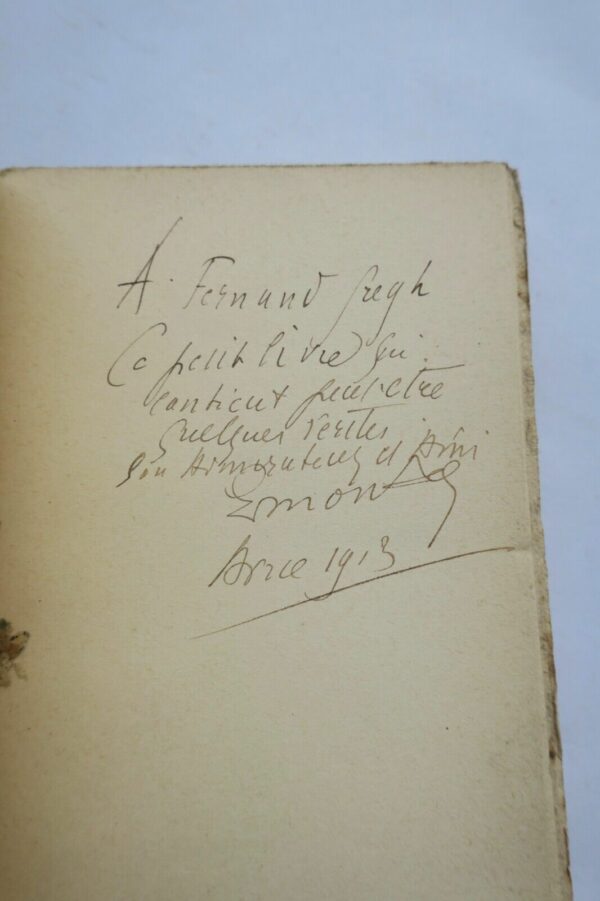 A. Fernand Gregh
Ce petit livre qui
contient peut-être
quelques vérités
Son Admirateur et Ami
1913